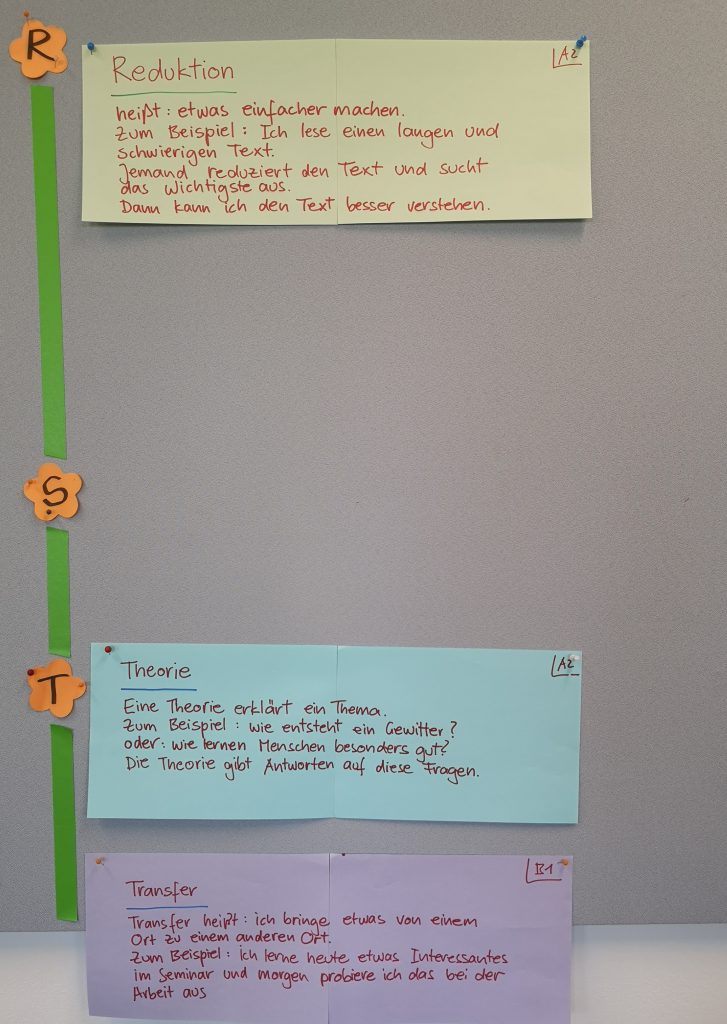 R
Reduktion
A2
heißt: etwas einfacher machen.
Zum Beispiel: Ich lese einen langen und
schwierigen Text.
Jemand reduziert den Text und sucht
das Wichtigste aus.
Dann kann ich den Text besser verstehen.
S
T
Theorie
A2
Eine Theorie erklärt ein Thema.
Zum Beispiel: wie entsteht ein Gewitter?
oder: wie lernen Menschen besonders gut?
Die Theorie gibt Antworten auf diese Fragen.
Transfer
B1
Transfer heißt: ich bringe etwas von einem
Ort zu einem anderen Ort.
Zum Beispiel: ich lerne heute etwas Interessantes
im Seminar und morgen probiere ich das bei der
Arbeit aus